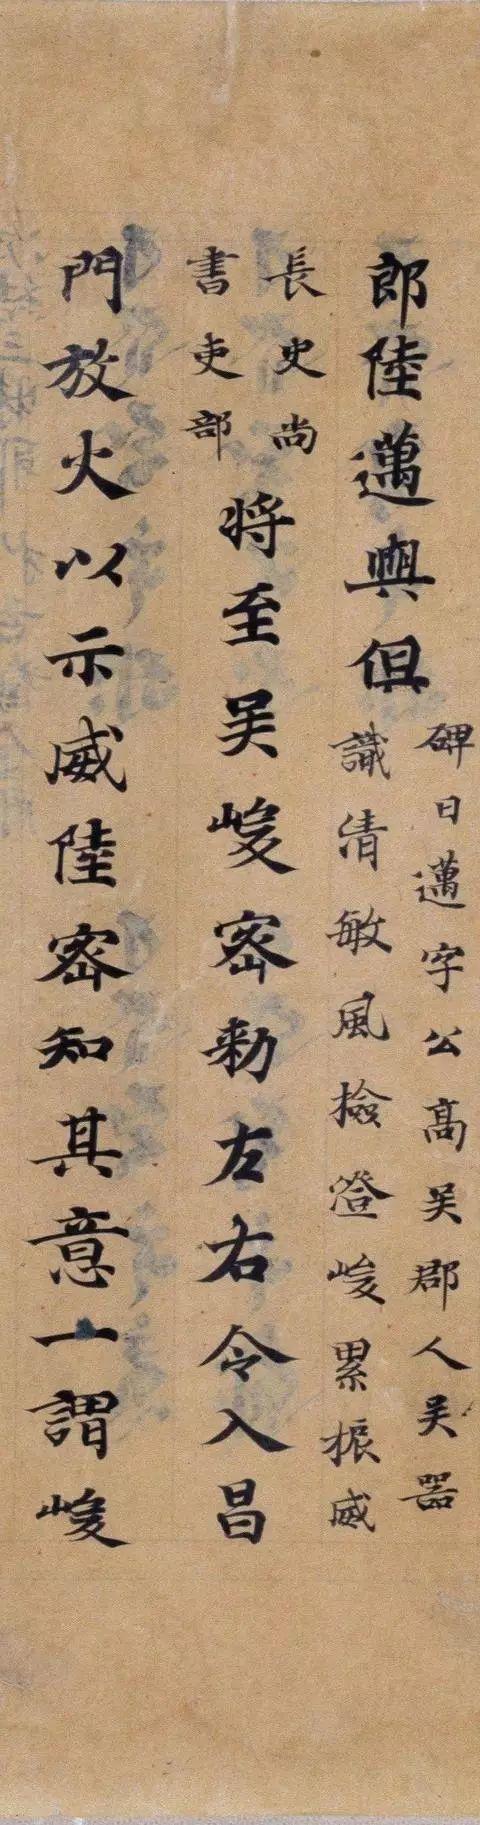 郎陸邁興俱
碑曰邁字公高吴郡人吴器
識清敏風檢澄峻累振威
長史尚
書吏部
將至吴峻密勑左右令入昌
門放火以示威陸密知其意一謂峻